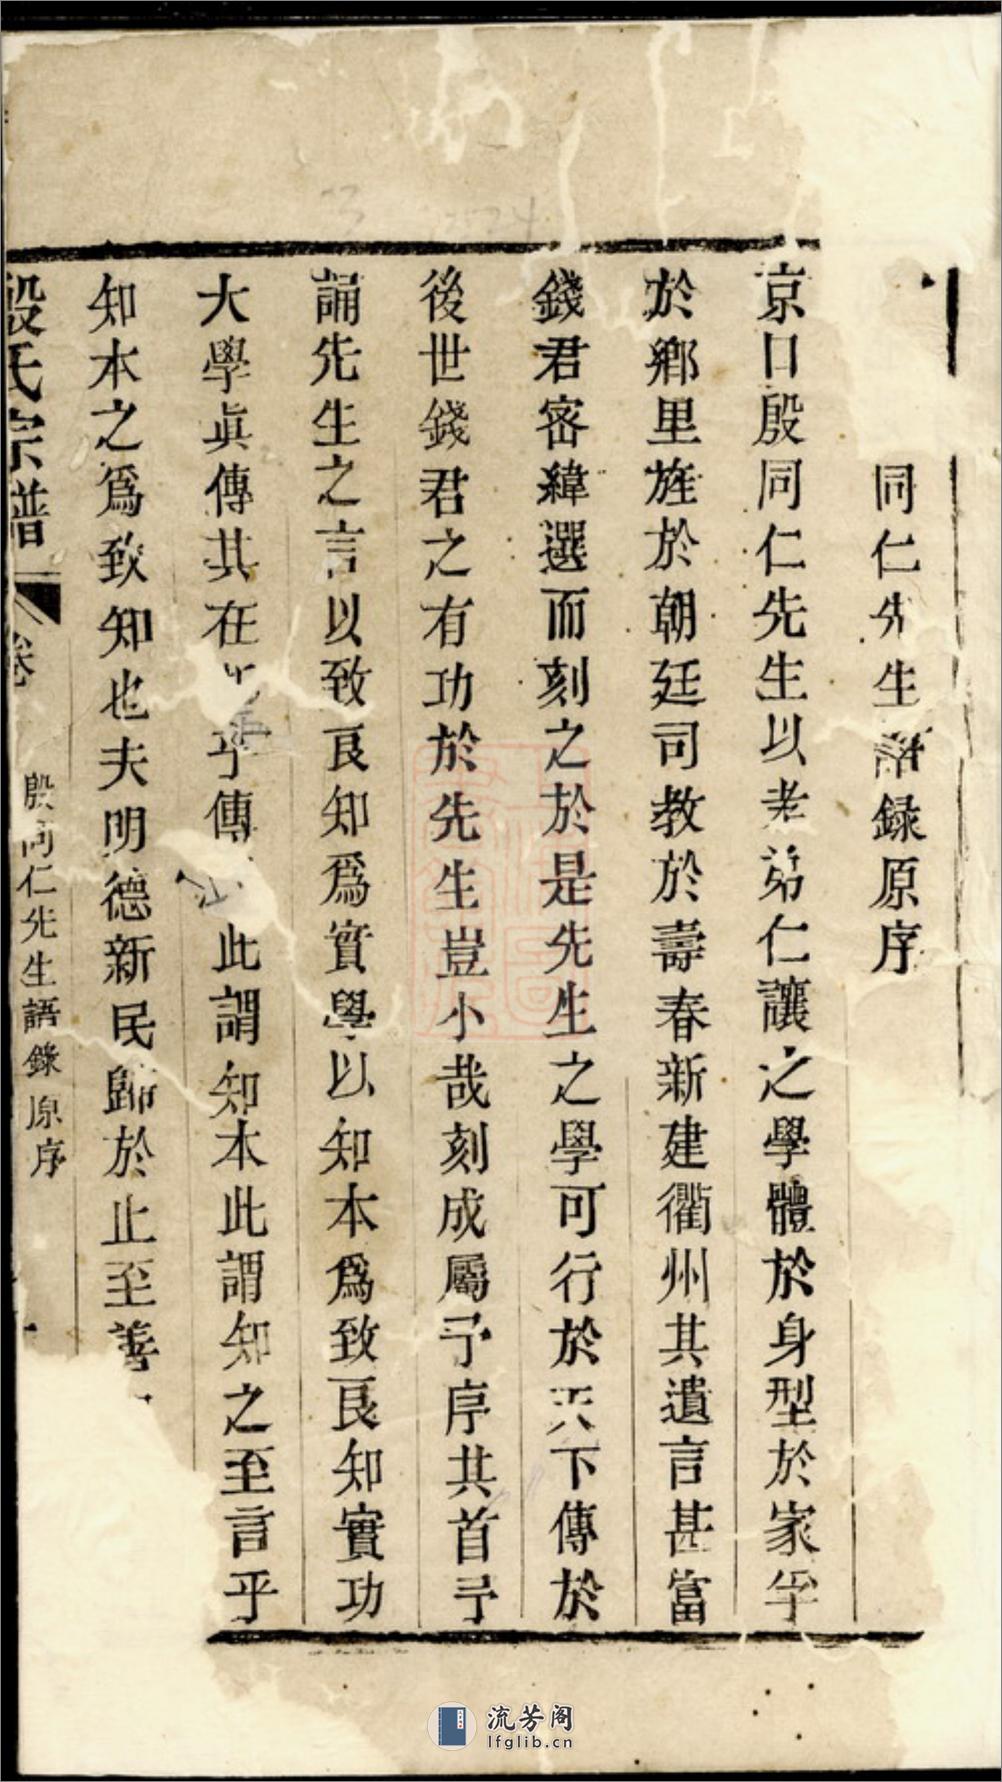 同仁先生語録原序
京口殷同仁先生以孝弟仁讓之學體於身型於家孚
於鄉里旌於朝廷司教於壽春新建衢州其遺言甚富
錢君密緯選而刻之於是先生之學可行於天下傳於
後世錢君之有功於先生豈小哉刻成屬予序其首予
誦先生之言以致良知爲實學以知本爲致良知實功
大學眞傳其在乎傳此謂知本此謂知之至言乎
知本之爲致知也夫明德新民歸於止至善
殷氏宗譜
卷
殷同仁先生語錄原序
一
流芳阁
lfglib.cn